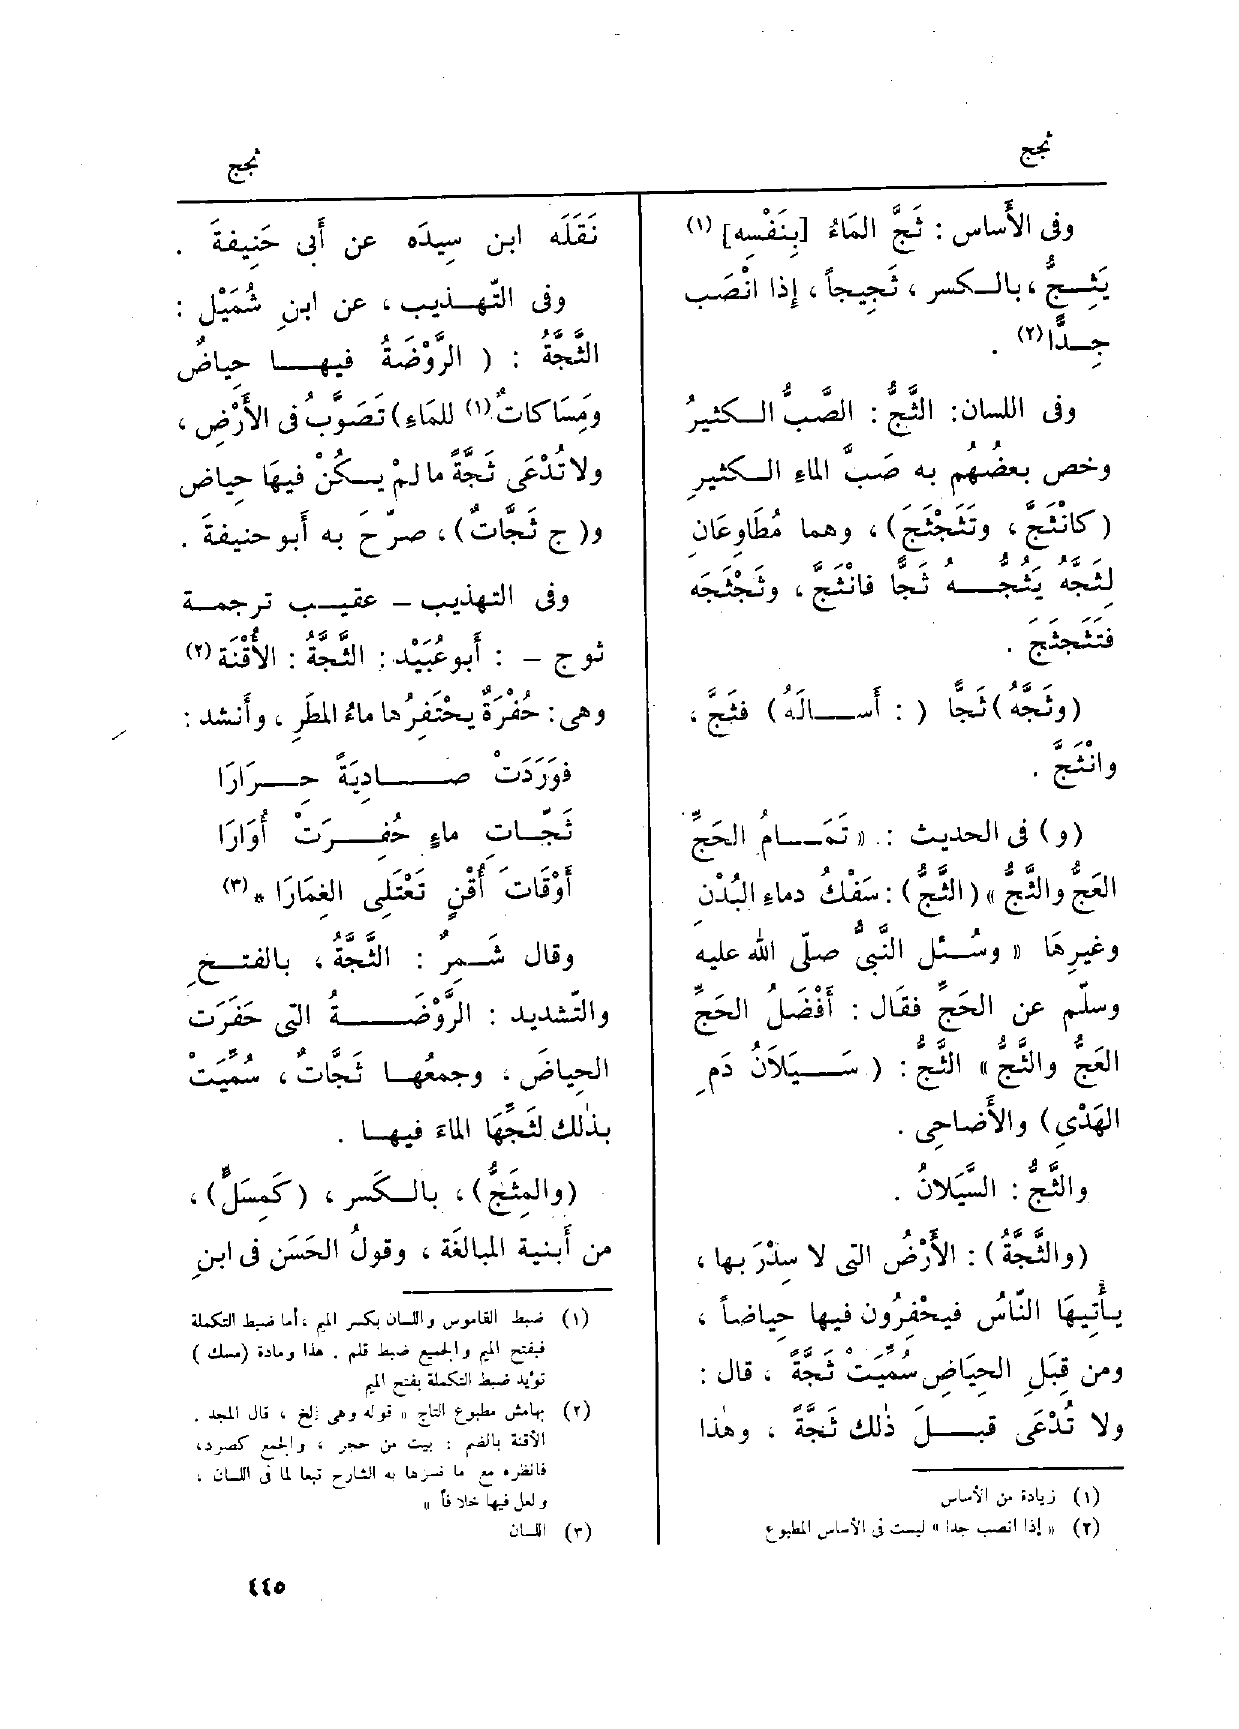 ثجج
ثجج
وفى الأَساس : ثَجَّ المَاءُ [بِنَفْسِه] (١)
يَثِـجُّ ، بالـكسر ، ثَجِيجاً ، إِذا انْصَب
جِـدًّا (٢) .
وفى اللسان: الثَّجُّ : الصَّبُّ الـكثيرُ
وخص بعضُهم به صَبَّ الماءِ الـكثيرِ
(كانْثَجَّ ، وتَثَجْثَجَ) ، وهما مُطَاوِعَانِ
لِثَجَّه يَثُجُّـهُ ثَجًّا فانْثَجَّ ، وثَجْثَجَه
فتَثَجثَج .
(وثَجَّهُ) ثَجًّا ( : أَسـالَهُ) فثَجَّ ،
وانْثَجَّ .
(و) فى الحديث : « تَمَـامُ الحَجِّ
العَجُّ والثَّجُّ » (الثَّجُّ) : سَفْكُ دماءِ البُدْنِ
وغيرِهَا « وسُـئل النَّبىُّ صلّى الله عليه
وسلّم عن الحَجِّ فقَال : أَفْضَلُ الحَجِّ
العَجُّ والثَّجُّ » الثَّجُّ : ( سَـيَلَانُ دَمِ
الهَدْىِ) والأَضاحِى .
والثَّجُّ : السَّيَلانُ .
(والثَّجَّةُ) : الأَرْضُ التى لا سِدْرَ بها ،
يأْتِيهَا النَّاسُ فيحْفِرُون فيها حِياضاً ،
ومن قِبَلِ الحِيَاضِ سُمِّيَتْ ثَجَّةً ، قال :
ولا تُدْعَى قبـلَ ذٰلك ثَجَّةً ، وهٰذا
(١) زيادة من الأساس
(٢) « إذا انصب جدا » ليست فى الأساس المطبوع
نَقَلَه ابن سِيدَه عن أَبى حَنِيفةَ .
وفى التَّهـذيب ، عن ابنِ شُمَيْل :
الثَّجَّةُ : ( الرَّوْضَةُ فيهـا حِياضٌ
ومَِسَاكاتٌ (١) للمَاءِ) تَصَوَّبُ فى الأَرْضِ ،
ولا تُدْعَى ثَجَّةً ما لمْ يـكُنْ فيهَا حِياض
و(ج ثَجَّاتٌ) ، صرّحَ به أَبو حنيفةَ .
وفى التهذيب – عقيـب ترجمـة
ثوج – : أَبو عُبَيْد : الثَّجَّةُ : الأُقْنَة (٢)
وهى : حُفْرَةٌ يحْتَفِرُها ماءُ المطَرِ ، وأَنشد :
فوَرَدَتْ صـادِيَةً حِـرَارَا
ثَجَّـات ماءٍ حُفِـرَتْ أُوَارَا
أَوْقَاتَ أُقْنٍ تَعْتَلِى الغِمَارَا * (٣)
وقال شَـمِرٌ : الثَّجَّةُ ، بالفتـحِ
والتَّشديد : الرَّوْضَـةُ التى حَفَرَت
الحِياضَ ، وجمعُهـا ثَجَّاتٌ ، سُمِّيَتْ
بذٰلك لثَجِّهَا الماءَ فيهـا .
(والمِثَجُّ) ، بالـكَسر ، (كَمِسَلٍّ) ،
من أَبنية المُبالَغَة ، وقولُ الحَسَن فى ابنِ
(١) ضبط القاموس واللسان بكسر الميم ، أما ضبط التكملة
فبفتح الميم والجميع ضبط قلم . هذا ومادة (مسك )
تؤيد ضبط التكملة بفتح الميم
(٢) بهامش مطبوع التاج « قوله وهى إلخ ، قال المجد .
الأقنة بالضم : بيت من حجر ، والجمع كصرد،
فانظره مع ما فسرها به الشارح تبعا لما فى اللسان ،
ولعل فيها خلافاً »
(٣) اللسان
٤٤٥